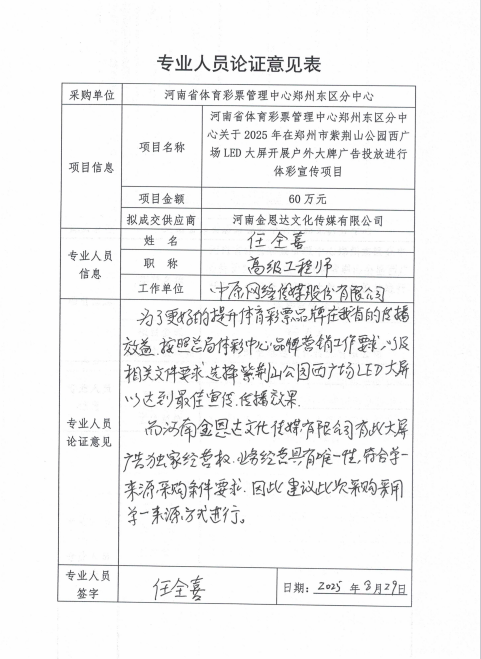 专业人员论证意见表
采购单位 河南省体育彩票管理中心郑州东区分中心
项目信息 项目名称 河南省体育彩票管理中心郑州东区分中
心关于 2025 年在郑州市紫荆山公园西广
场 LED 大屏开展户外大牌广告投放进行
体彩宣传项目
项目金额 60 万元
拟成交供应商 河南金恩达文化传媒有限公司
专业人员
信息
姓 名 任全喜
职 称 高级工程师
工作单位 中原网络传媒股份有限公司
专业人员
论证意见
为了更好的提升体育彩票品牌在我省的传播
效益,按照总局体彩中心品牌营销工作要求,以及
相关文件要求选择紫荆山公园西广场LED大屏
以达到最佳宣传传播效果.
而河南金恩达文化传媒有限公司有此大屏
广告独家经营权,业务经营具有唯一性,符合单一
来源采购条件要求.因此建议此次采购采用
单一来源方式进行。
专业人员
签字
任全喜
日期: 2025 年 8月29日